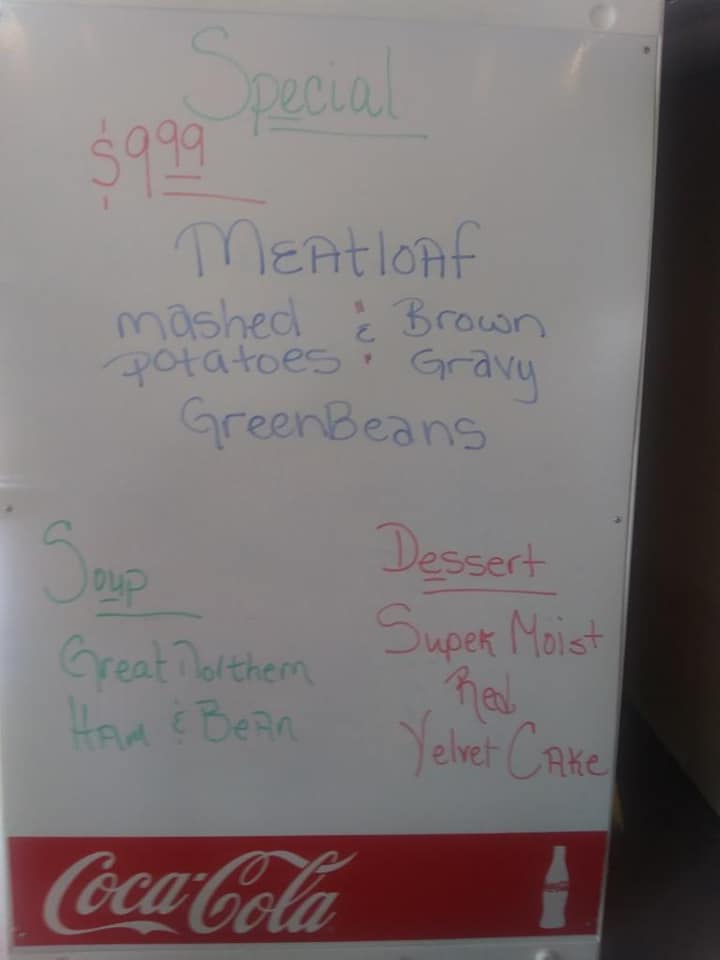 Special
$9.99
MEAtloAf
mashed & Brown
potatoes Gravy
GreenBeans
Soup
Great Northern
HAm & BeAn
Dessert
SupeR Moist
Red
Velvet CAKe
Coca-Cola